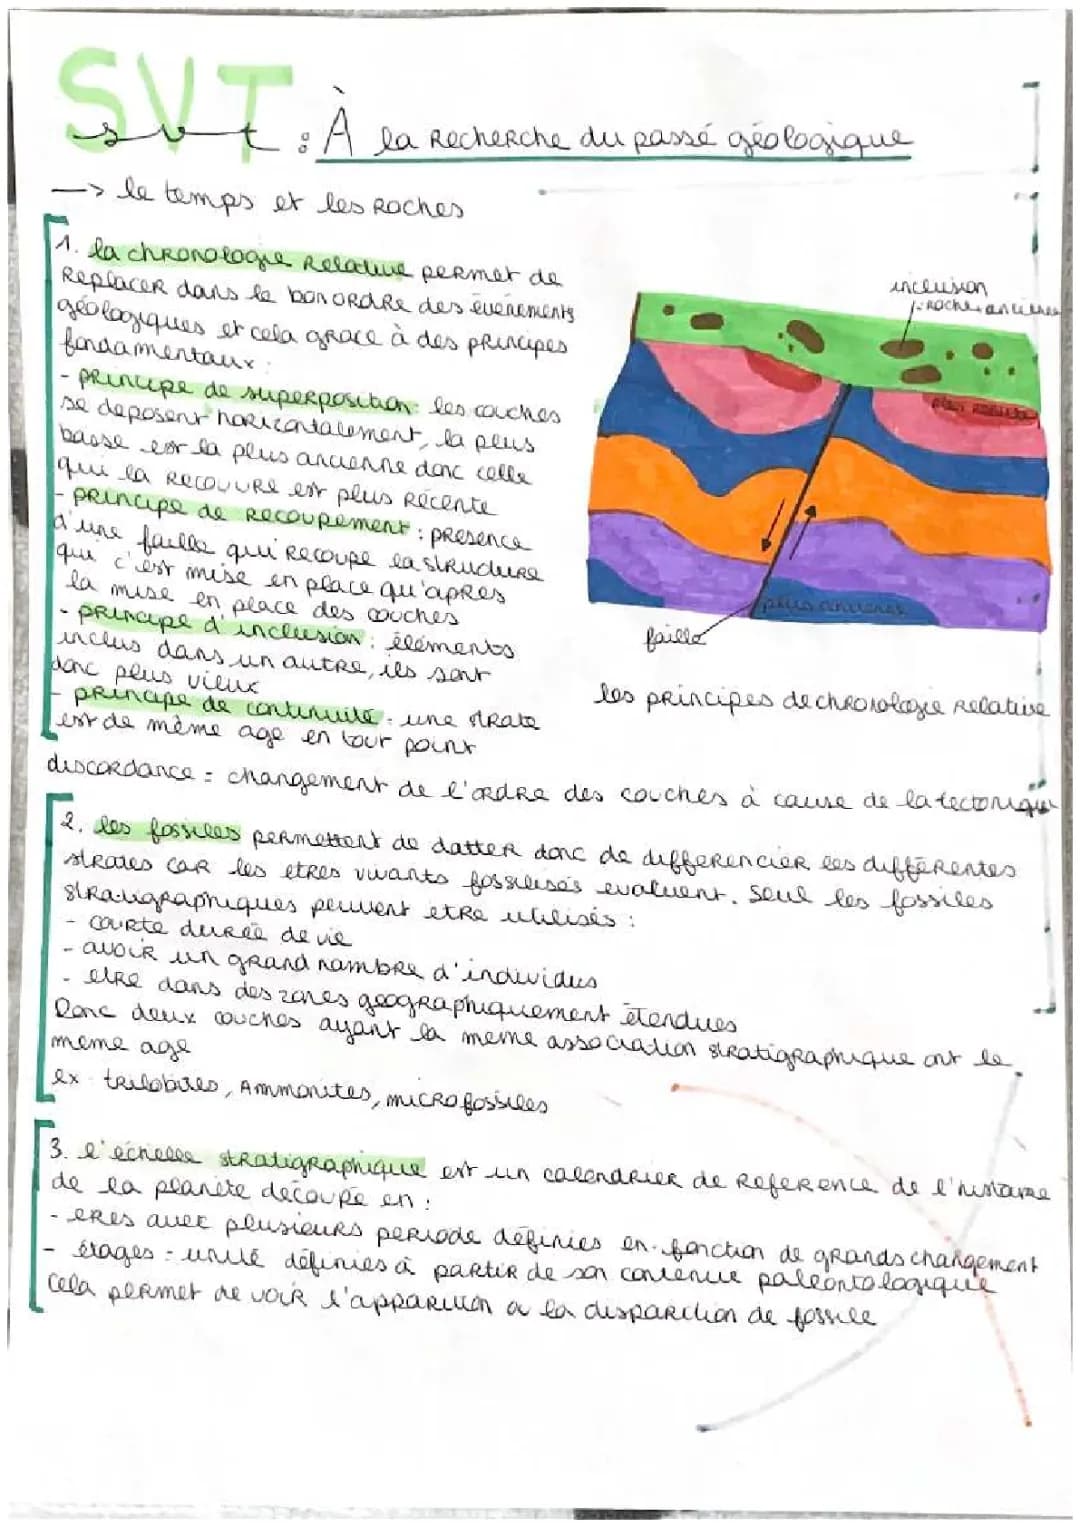 SVT
svt : À la recherche du passé géologique
—> le temps et les roches
1. la chronologie relative permet de
replacer dans le bon ordre des événements
géologiques et cela grace à des principes
fondamentaux :
- principe de superposition : les couches
se deposent horizontalement, la plus
basse est la plus ancienne donc celle
qui la recouvre est plus récente
- principe de recoupement : présence
d'une faille qui recoupe la structure
qui c'est mise en place qu'après
la mise en place des couches
- principe d'inclusion : éléments
inclus dans un autre, ils sont
donc plus vieux
- principe de continuité : une strate
est de même age en tout point
inclusion
: roche ancienne
plus récente
plus ancienne
faille
les principes de chronologie relative
discordance = changement de l'ordre des couches à cause de la tectonique
2. les fossiles permettent de datter donc de différencier les différentes
strates car les etres vivants fossilisés evoluent. Seul les fossiles
stratigraphiques peuvent être utilisés :
- courte durée de vie
- avoir un grand nombre d'individus
- etre dans des zones géographiquement étendues
Donc deux couches ayant la meme association stratigraphique ont le
meme age
ex : trilobites, Ammonites, microfossiles
3. l'échelle stratigraphique est un calendrier de reference de l'histoire
de la planète découpé en :
- eres avec plusieurs periode définies en fonction de grands changement
- étages = unité définies à partir de son contenue paléontologique
Cela permet de voir l'apparition ou la disparition de fossile